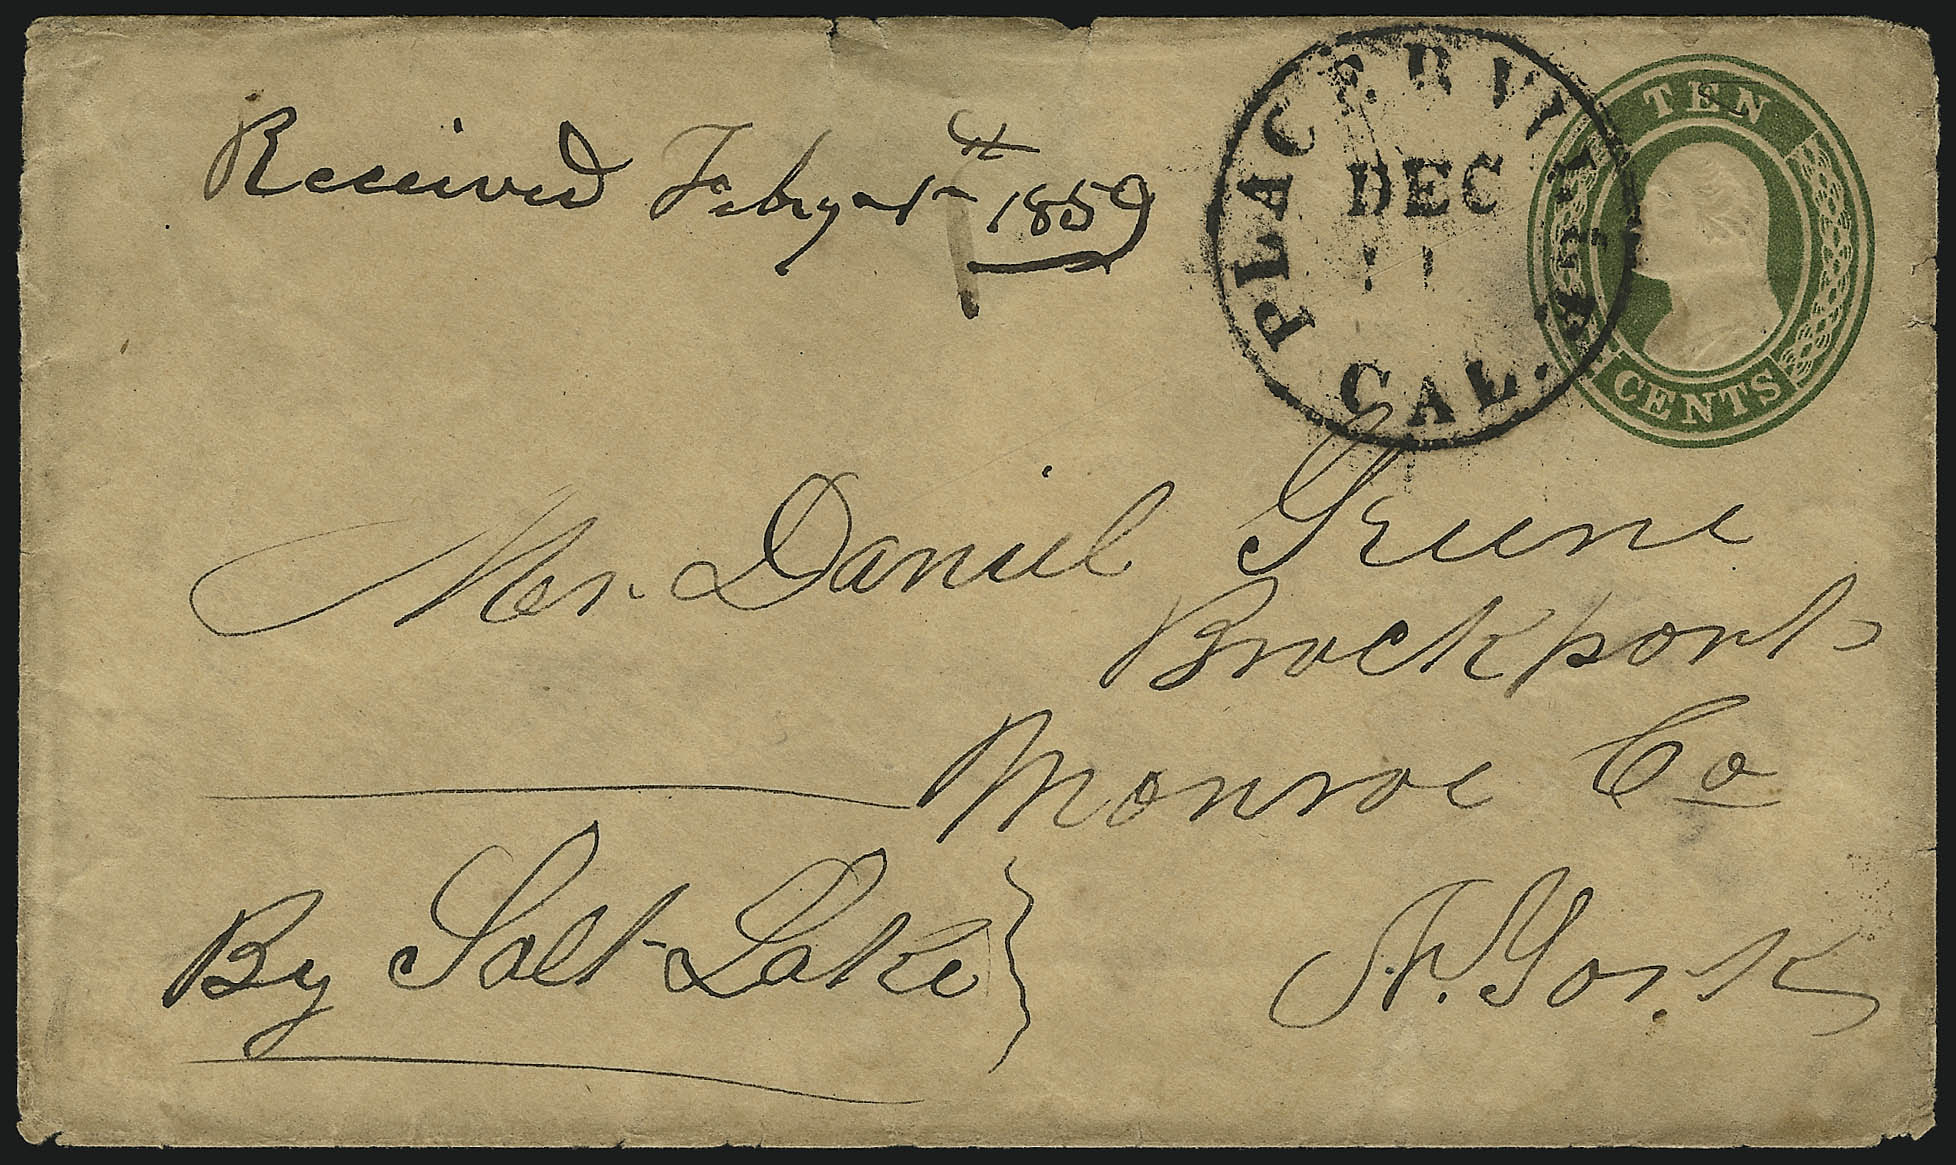 Received Febry 1859
PLACERVILLE
DEC
11
CAL.
TEN
CENTS
Mr. Daniel Greene
Brockport
Monroe Co
By Salt Lake
N. York